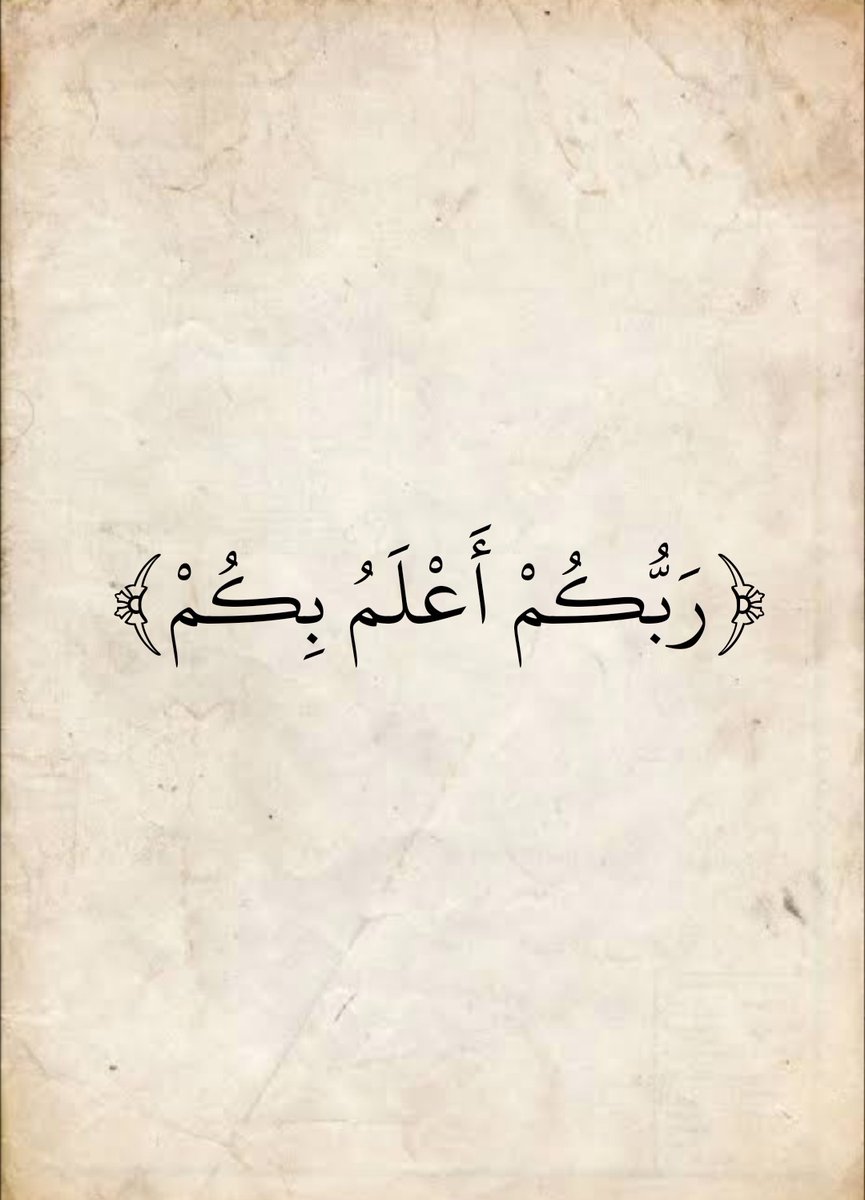 ﴿رَبُّكُمْ أَعْلَمُ بِكُمْ﴾